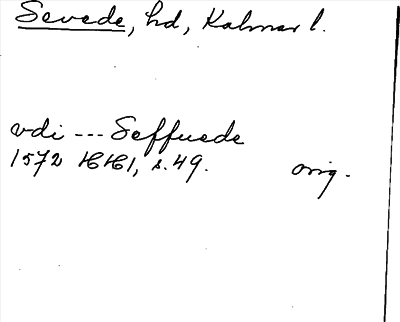 Sevede, hd, Kalmar l.
vdi --- Seffuede
1572 HH1, s. 49. orig.